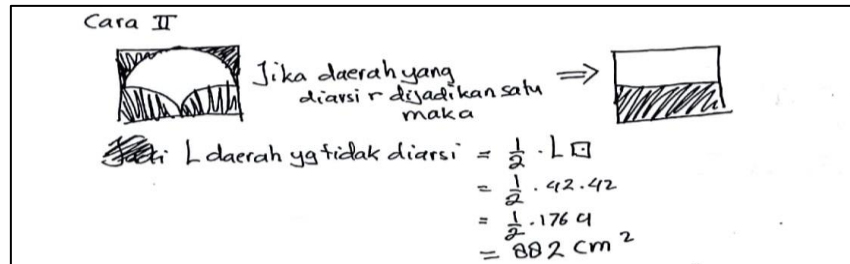 Cara II
Jika daerah yang
diarsi r dijadikan satu
maka
⇒
L daerah yg tidak diarsi = 1/2 . L □
= 1/2 . 42.42
= 1/2 . 1764
= 882 cm²